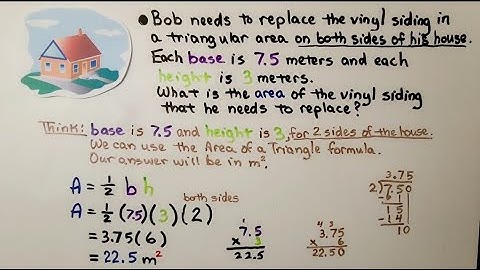 • Bob needs to replace the vinyl siding in
a triangular area on both sides of his house.
Each base is 7.5 meters and each
height is 3 meters.
What is the area of the vinyl siding
that he needs to replace?
Think: base is 7.5 and height is 3, for 2 sides of the house.
We can use the Area of a Triangle formula.
Our answer will be in m².
A = 1/2 b h
both sides
A = 1/2 (7.5)(3)(2)
= 3.75(6)
= 22.5 m²
1
7.5
x 3
22.5
4 3
3.75
x 6
22.50
3.75
2)7.50
-6 1
15
-14
10